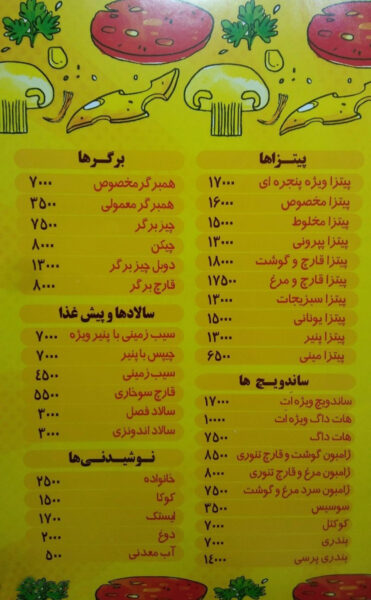 پیتزاها
پیتزا ویژه پنجره ای ۱۷۰۰۰
پیتزا مخصوص ۱۶۰۰۰
پیتزا مخلوط ۱۵۰۰۰
پیتزا پپرونی ۱۳۰۰۰
پیتزا قارچ و گوشت ۱۸۰۰۰
پیتزا قارچ و مرغ ۱۷۵۰۰
پیتزا سبزیجات ۱۳۰۰۰
پیتزا یونانی ۱۵۰۰۰
پیتزا پنیر ۱۳۰۰۰
پیتزا مینی ۶۵۰۰
ساندویچ ها
ساندویچ ویژه ات ۱۷۰۰۰
هات داگ ویژه ات ۱۰۰۰۰
هات داگ ۷۵۰۰
ژامبون گوشت و قارچ تنوری ۸۵۰۰
ژامبون مرغ و قارچ تنوری ۸۰۰۰
ژامبون سرد مرغ و گوشت ۷۵۰۰
سوسیس ۳۵۰۰
کوکتل ۷۰۰۰
بندری ۷۰۰۰
بندری پرسی ۱۴۰۰۰
برگرها
همبرگر مخصوص ۷۰۰۰
همبرگر معمولی ۳۵۰۰
چیز برگر ۷۵۰۰
چیکن ۸۰۰۰
دوبل چیز برگر ۱۳۰۰۰
قارچ برگر ۸۰۰۰
سالادها و پیش غذا
سیب زمینی با پنیر ویژه ۷۰۰۰
چیپس با پنیر ۷۰۰۰
سیب زمینی ۴۵۰۰
قارچ سوخاری ۵۵۰۰
سالاد فصل ۳۰۰۰
سالاد اندونزی ۳۰۰۰
نوشیدنی‌ها
خانواده ۲۵۰۰
کوکا ۱۵۰۰
لیستک ۱۷۰۰
دوغ ۲۰۰۰
آب معدنی ۵۰۰